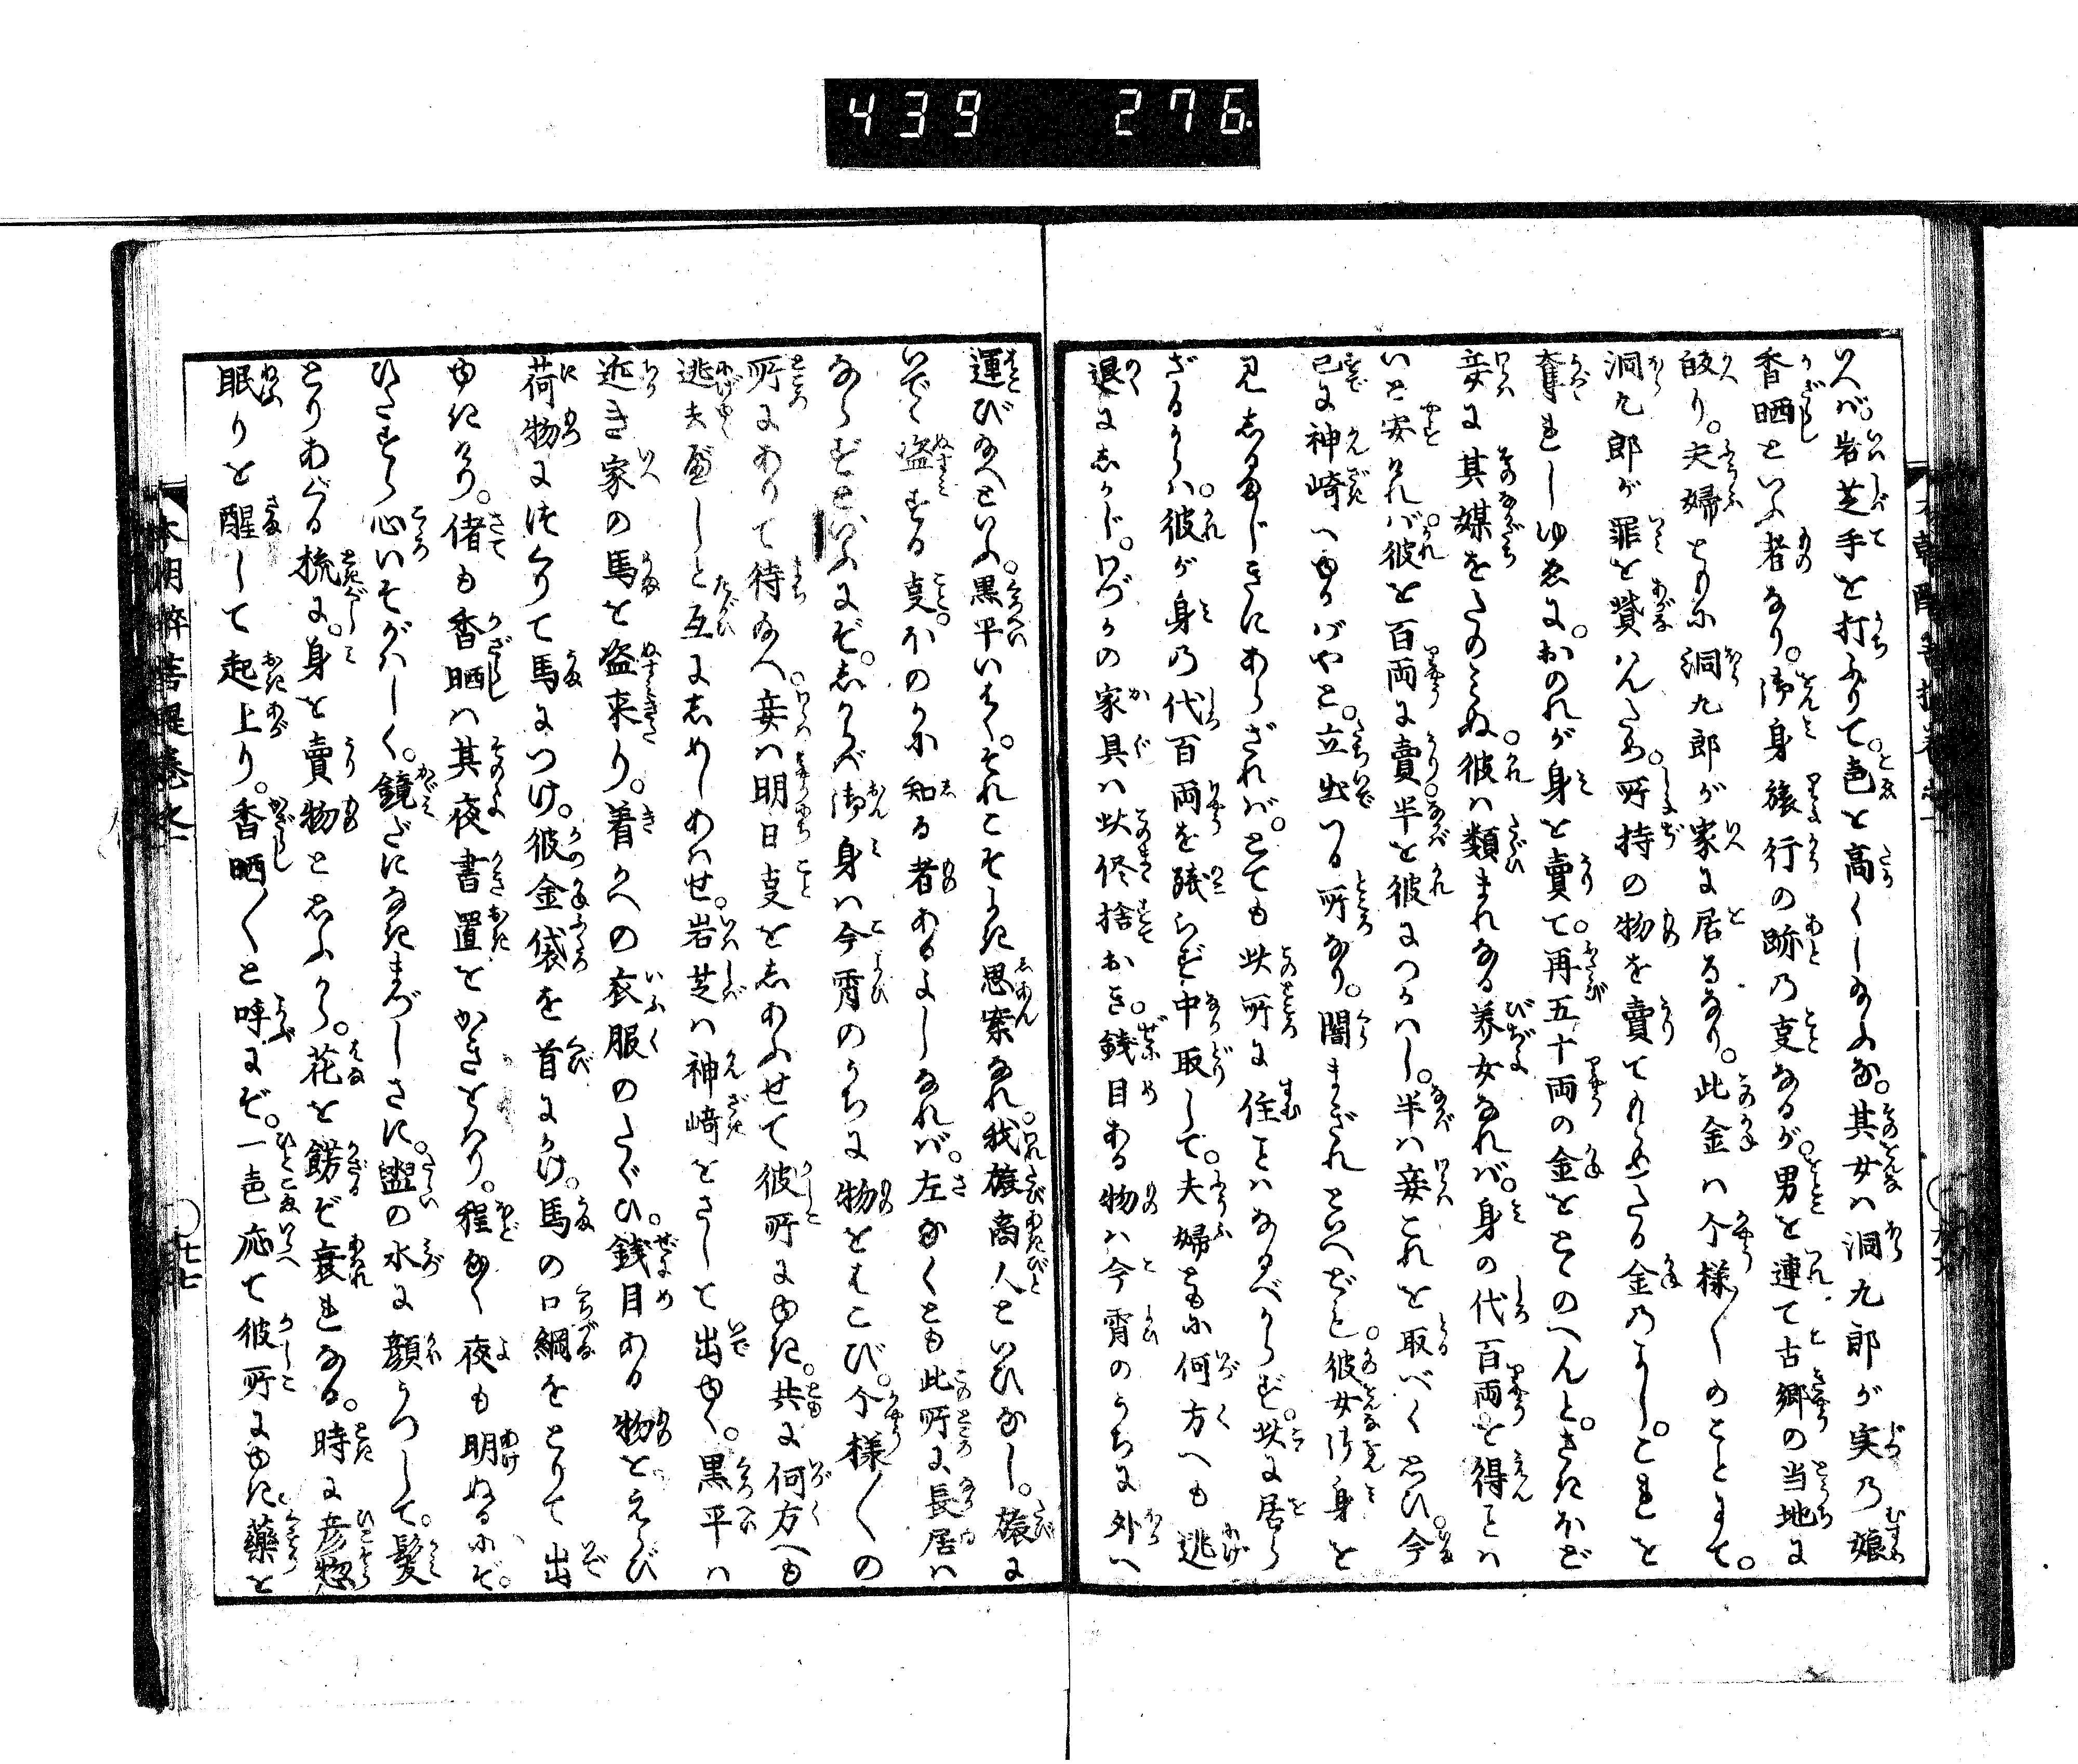 439 276
いへば。岩芝手を打ふりて。声を高くしなふな。其女は洞九郎が実の娘
香晒といふ者なり。御身旅行の跡の事なるが。男を連て古郷の当地に
皈り。夫婦ともに洞九郎が家に居るなり。此金は个様〳〵のことにて。
洞九郎が罪を贖はんため。所持の物を賣てのぼせたる金のよし。これを
奪れしゆゑに。おのれが身を賣て。再五十両の金をとゝのへんと。さきほど
妾に其媒をたのみぬ。彼は類まれなる美女なれば。身の代百両を得んは
いと安ければ。彼を百両に賣。半を彼につかはし。半は妾これを取べくおもひ。今
已に神崎へゆかばやと。立出つる所なり。闇まぎれといへども。彼女御身を
見しるまじきにあらざれば。とても此所に住ことはなるべからず。此に居ら
ざるからは。彼が身の代百両を残らず中取して。夫婦ともに何方へも逃
退にしかじ。わづかの家具は此侭捨おき。銭目ある物は今宵のうちに外へ
運びなへといふ。黒平いはく。それこそよき思案なれ。我旅商人といひなし。旅に
いでゝ盗する事。ほのかに知る者あるよしなれば。左なくとも此所に長居は
ならずといふにぞ。しからば御身は今宵のうちに物をはこび。个様〳〵の
所にありて待なへ。妾は明日事をしおふせて彼所にゆき。共に何方へも
逃去べしと互にしめしあはせ。岩芝は神崎をさして出ゆく。黒平は
近き家の馬を盗来り。着かへの衣服のたぐひ。銭目ある物をえらび
荷物につくりて馬につけ。彼金袋を首にかけ。馬の口綱をとりて出
ゆきけり。偖も香晒は其夜書置をかきをはり。程なく夜も明ぬるにぞ。
ひたすら心いそがはしく。鏡だになきまづしさに。盥の水に顔うつして。髪
とりあぐる梳に。身を賣物とおもふから。花を餝ぞ哀れなる。時に彦惣
眠りを醒して起上り。香晒〳〵と呼にぞ。一声応て彼所にゆき薬を
本朝酔菩提巻之
七七